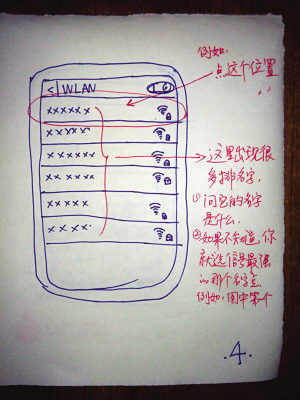 例如:
点这个位置
< WLAN
xxxxx x
xxxxx
xxxxxx
xx xxxx
xxxxx
xxxx
这里出现很
多排名字,
①问它的名字
是什么.
②如果不知道,你
就选信号最强
的那个名字点
例如:图中第一个
.4.